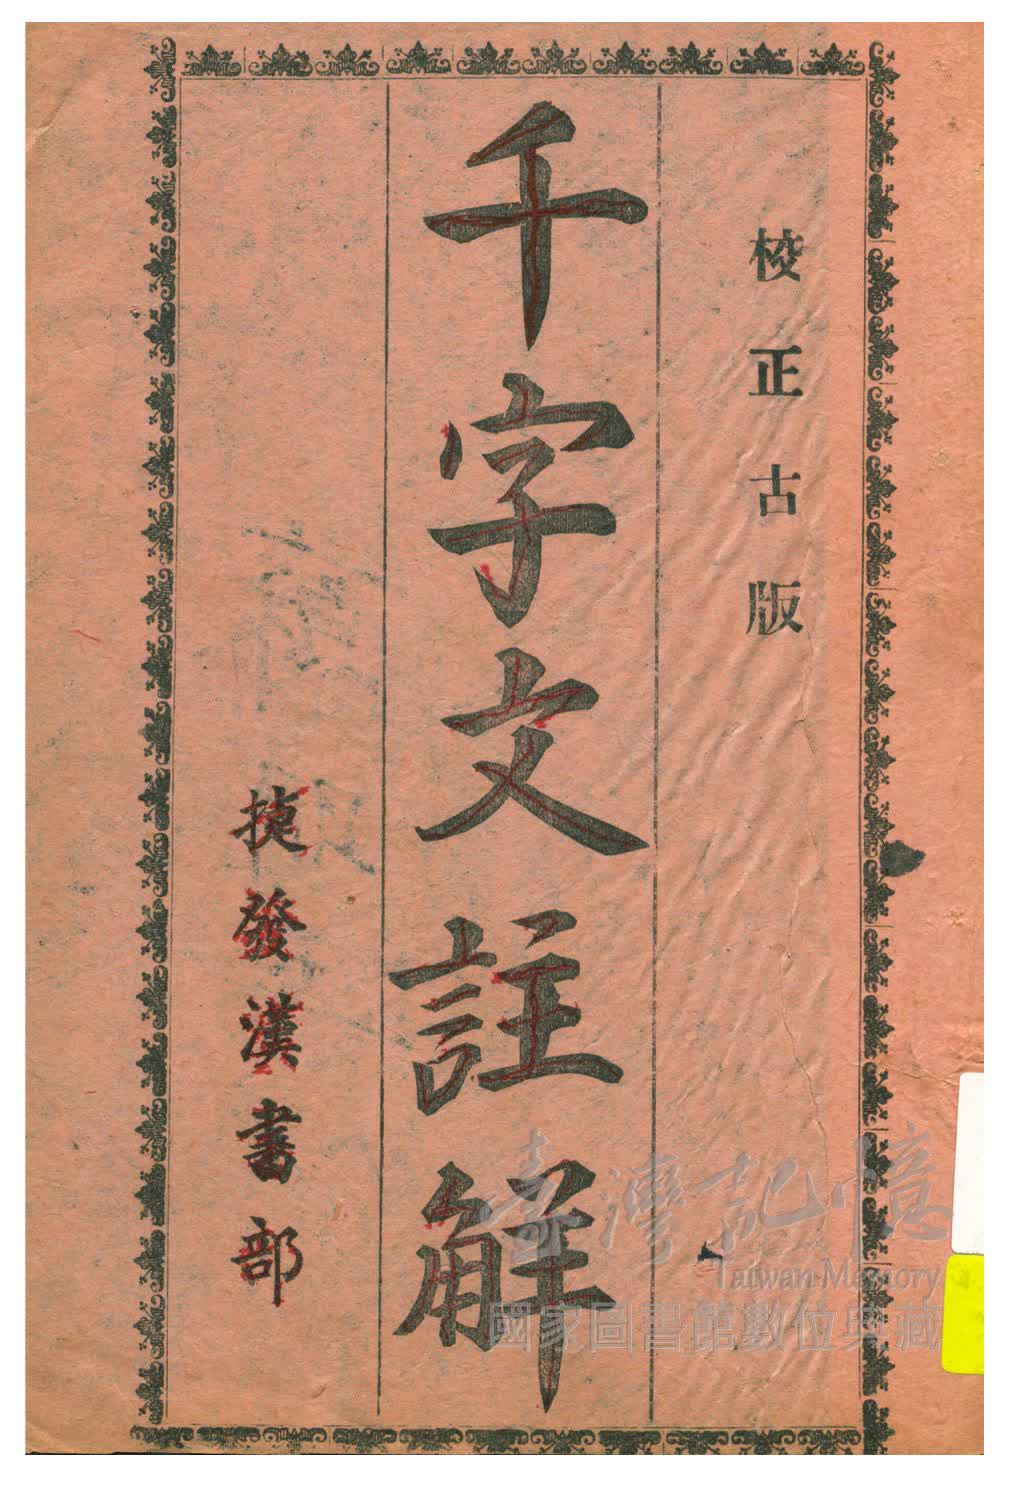 校正古版
千字文註解
捷發漢書部
臺灣記憶
Taiwan Memory
國家圖書館數位典藏